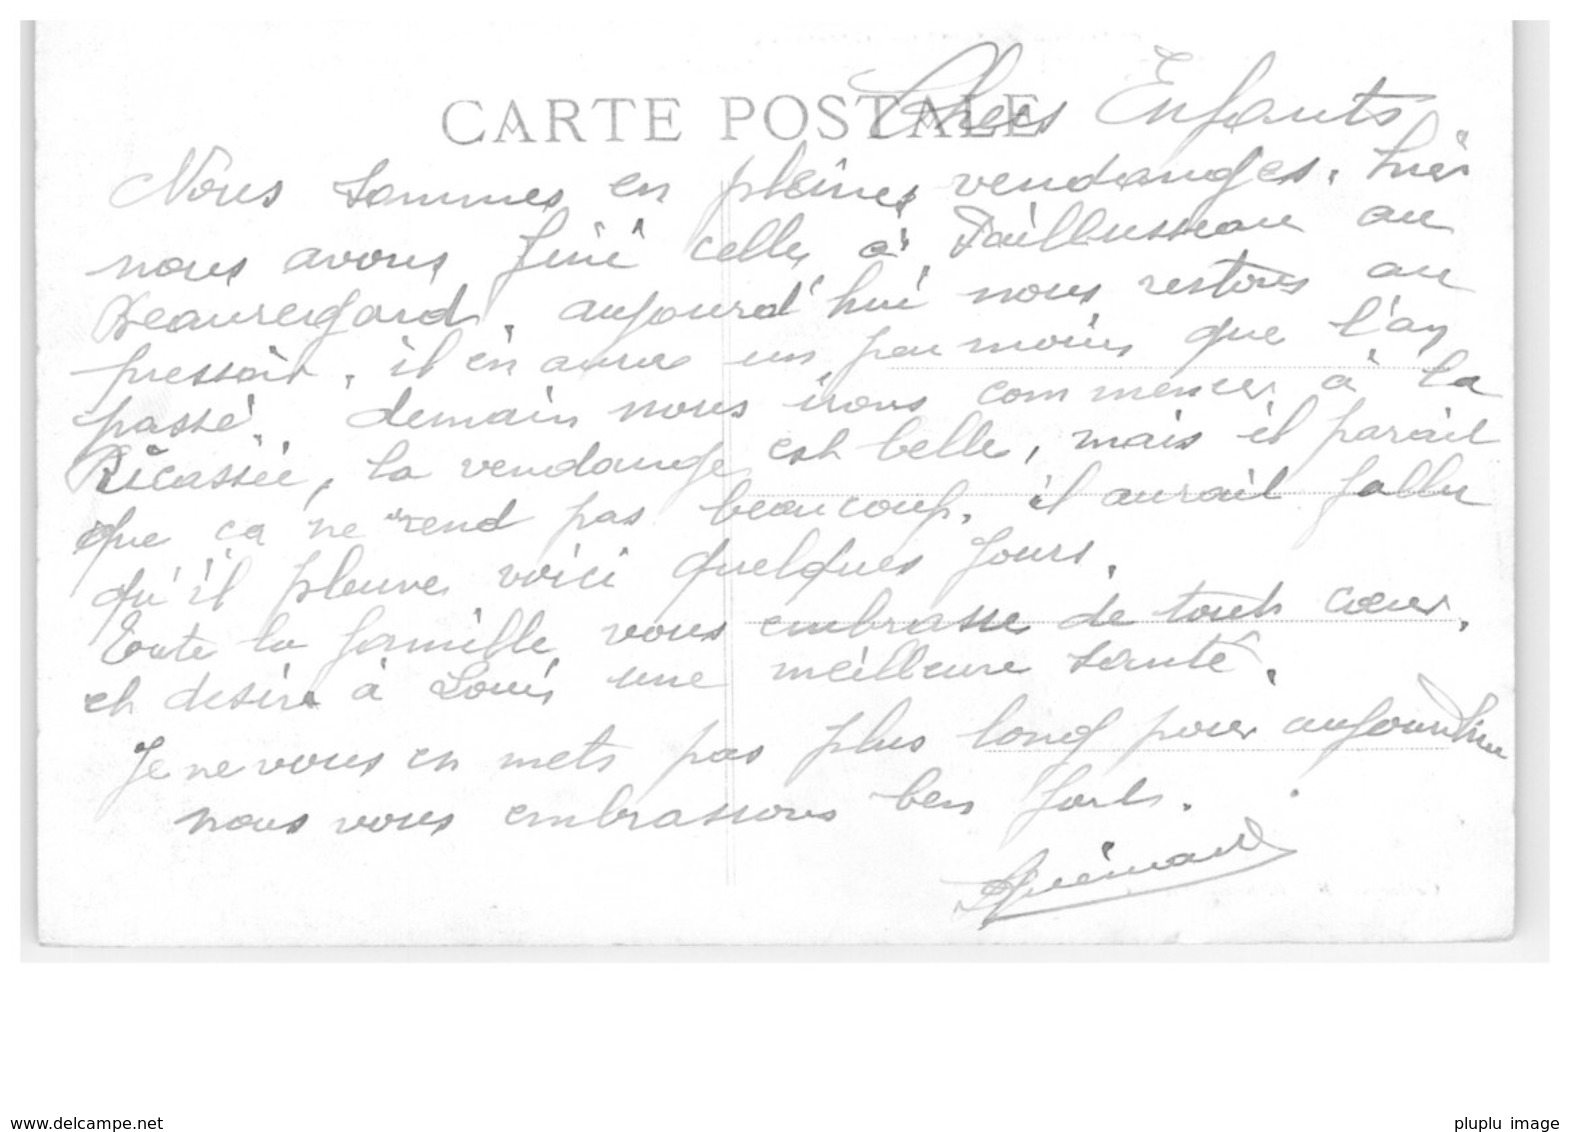 CARTE POSTALE
Chers Enfants
Nous sommes en pleines vendanges. hier
nous avons fini celles à Taillusseau au
Beauregard, aujourd'hui nous restons au
pressoir, il en aura un peu moins que l'an
passé, demain nous irons commencer à la
Ricassiée, la vendange est belle, mais il parait
que ca ne rend pas beaucoup, il aurait fallu
qu'il pleuve voici quelques jours.
Toute la famille vous embrasse de tout cœur,
et desire à Louis une meilleure santé.
Je ne vous en mets pas plus long pour aujourdhui
nous vous embrassons ben forts.
delcampe.net
pluplu image